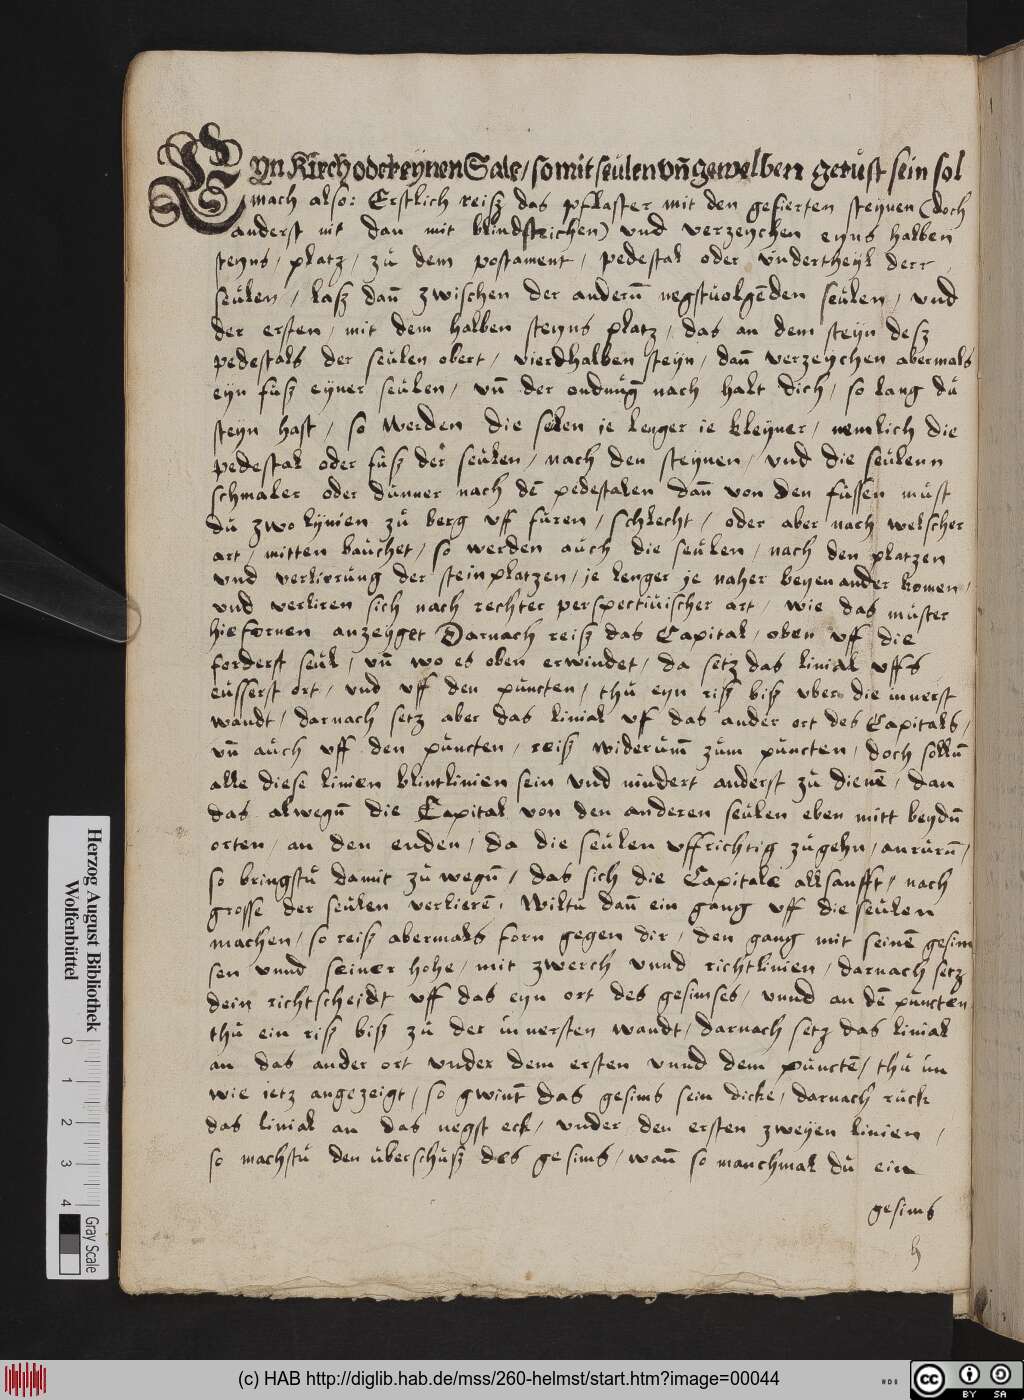 Eyn Kirch oder eynen Sale / so mit seülen vn̄ gewelben gerüst sein sol
mach also: Erstlich reisz das pflaster mit den gefierten steynen (doch
anderst nit dan mit blindstrichen) vnd verzeychen eyns halben
steyns / platz / zů dem postament / pedestal oder vndertheyl derr
seülen / lasz dan̄ zwischen der andern̄ negstuolgēden seülen / vnd
der ersten / mit dem halben steyns platz / das an dem steyn desz
pedestals der seülen obert / vierdhalben steyn / dan̄ verzeychen abermals
eyn fusz eyner seülen / vn̄ der ordnūg nach halt dich / so lang dů
steyn hast / so werden die selen ie lenger ie kleyner / nemlich die
pedestal oder fusz der seülen / nach den steynen / vnd die seülenn
schmaler oder dünner nach dē pedestalen dan̄ von den füssen můst
dů zwo lynien zů berg vff füren / schlecht / oder aber nach welscher
art / mitten bauchet / so werden auch die seülen / nach den platzen
vnd verlierung der steinplatzen / je lenger je naher beyenander komen /
vnd verliren sich nach rechter perspectiuischer art / wie das muster
hiefornen anzeyget Darnach reisz das Capital / oben vff die
forderst seül / vn̄ wo es oben erwindet / da setz das linial vffs
eüsserst ort / vnd vff den puncten / thů eyn risz bisz vber die innerst
wandt / darnach setz aber das linial vf das ander ort des Capitals /
vn̄ auch vff den puncten / reisz widerum̄ zům puncten / doch solln̄
alle diese linien blintlinien sein vnd nindert anderst zů dienē / dan
das alwegn̄ die Capital von den anderen seülen eben mitt beydn̄
orten / an den enden / da die seülen vffrichtig zůgehn / anrürn̄ /
so bringstů damit zů wegn̄ / das sich die Capitale allsanfft / nach
grosse der seülen verlierē. Wiltu dan̄ ein gang vff die seülen
machen / so reisz abermals forn gegen dir / den gang mit seinē gesim
sen vnnd seiner hohe / mit zwerch vnnd richtlinien / darnach setz
dein richtscheidt vff das eyn ort des gesimses / vnnd an dē puncten
thů ein risz bisz zů der innersten wandt / darnach setz das linial
an das ander ort vnder dem ersten vnnd dem punctē / thů im
wie ietz angezeigt / so gwint̄ das gesims sein dicke / darnach rück
das linial an das negst eck / vnder den ersten zweyen linien /
so machstu den überschusz des gesims / wan̄ so manchmal dů ein
gesims
h
Herzog August Bibliothek
Wolfenbüttel
0 1 2 3 4
Gray Scale
(c) HAB http://diglib.hab.de/mss/260-helmst/start.htm?image=00044
HAB
cc BY SA